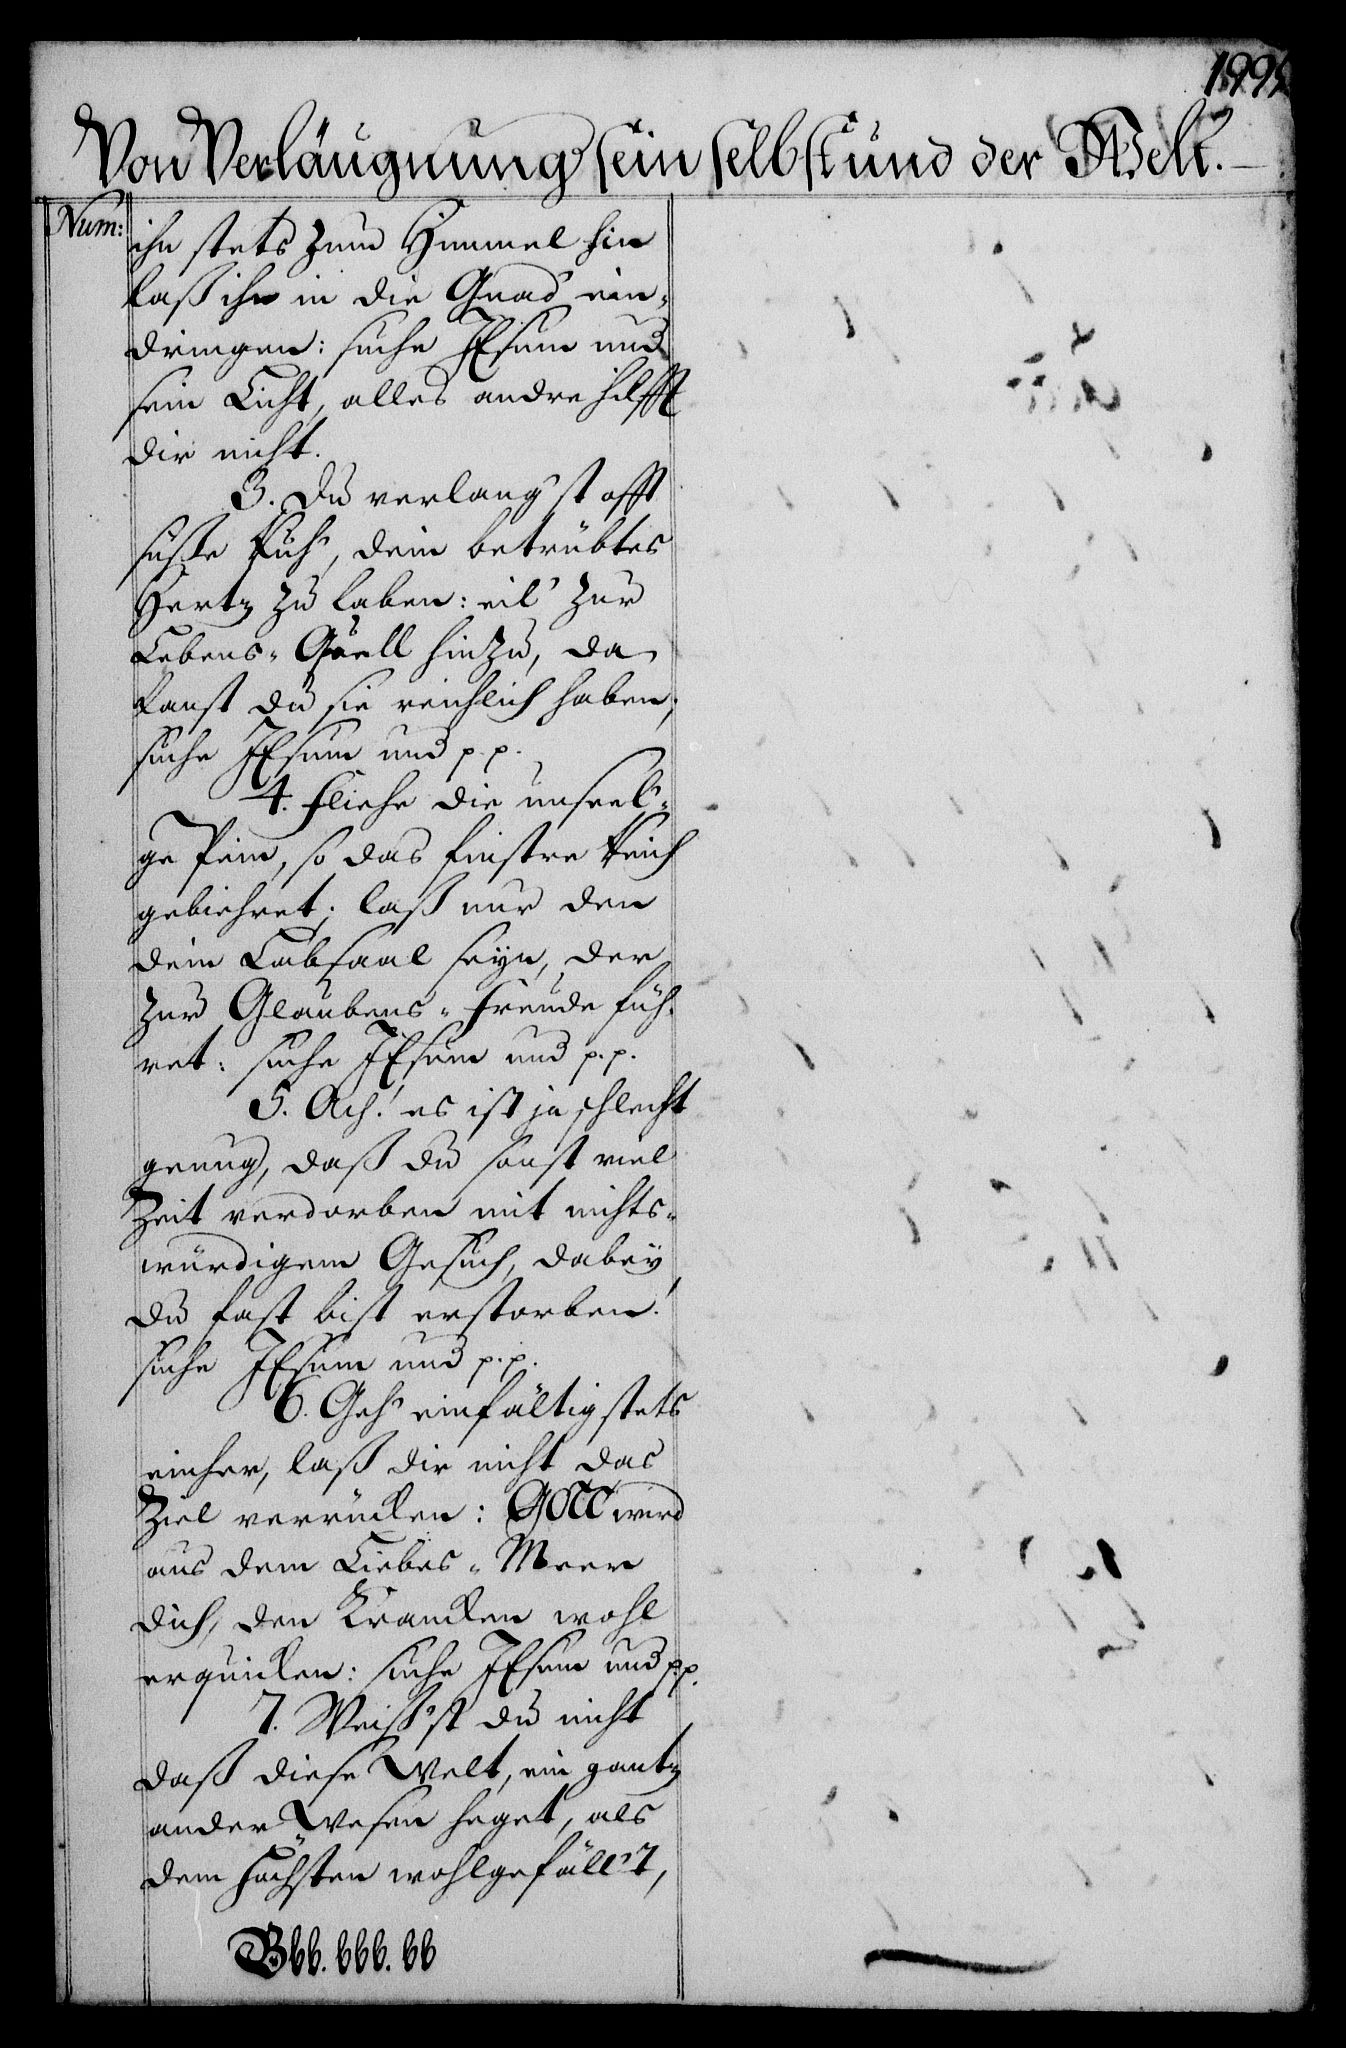 1995
Von Verläugnung sein selbst und der Welt.
Num:
ihn stets zum Himmel hin
laß ihn in die Gnad' ein-
dringen: suche JEsum und
sein Licht, alles andre hilfft
dir nicht.
3. Du verlang'st offt
süße Ruh', dein betrübtes
Hertz zu laben: eil' zur
Lebens-Quell hinzu, da
kanst du sie reichlich haben;
suche JEsum und p.p.
4. Fliehe die unseel'-
ge Pein, so das finstre Reich
gebiehret; laß nur den
dein Labsaal seyn, der
zur Glaubens-Freude füh-
ret: suche JEsum und p.p.
5. Ach! es ist ja schlecht
genug, daß du sonst viel
Zeit verdorben mit nichts-
würdigem Gesuch, dabey
du fast bist erstorben!
suche JEsum und p.p.
6. Geh' einfältig stets
einher, laß dir nicht das
Ziel verrücken: GOtt wird
aus dem Liebes-Meer
dich, den Krancken wohl
erquicken: suche JEsum und p.p.
7. Weiß'st du nicht
daß diese Welt, ein gantz
ander Wesen heget, als
dem Höchsten wohlgefäll't,
Bbb. bbb. bb